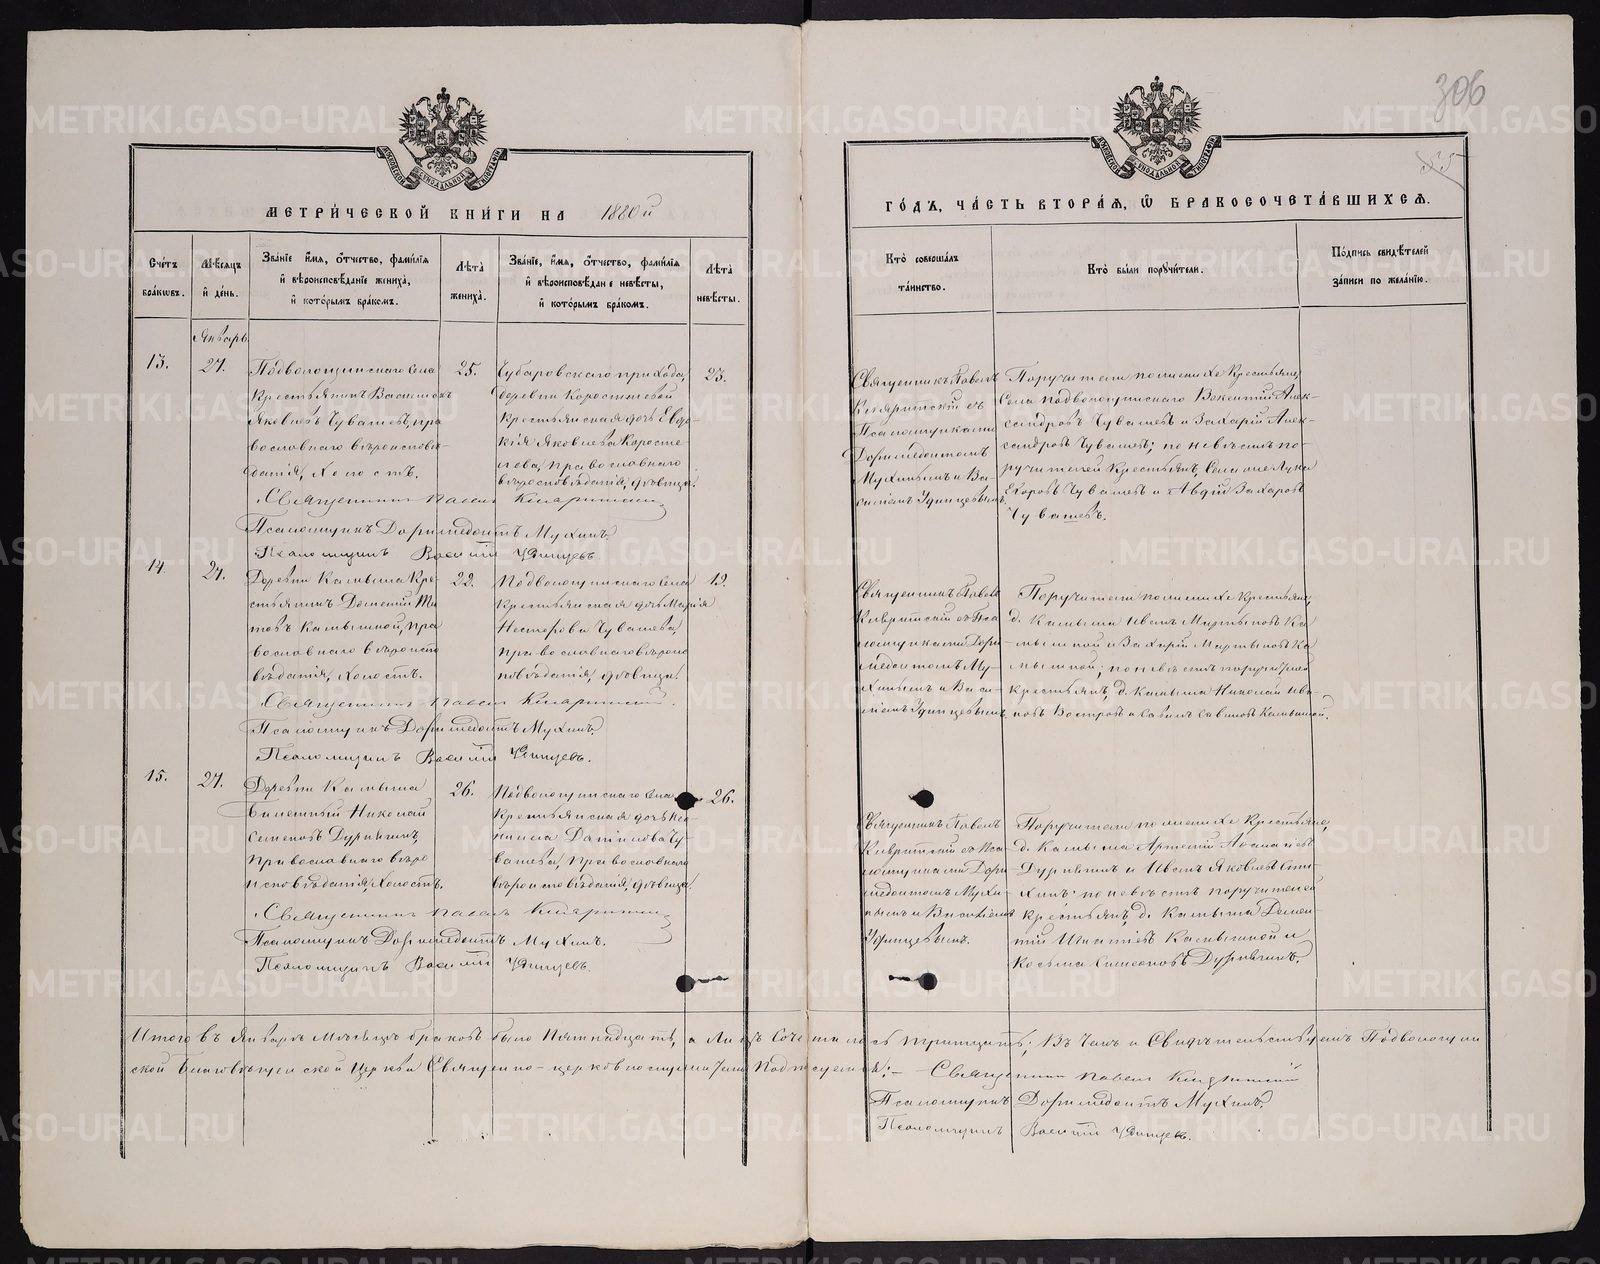 306
МЕТРИ́ЧЕСКОЙ КНИ́ГИ НА 1880й
ГО́ДЪ, ЧА́СТЬ ВТОРА́Я, Ѡ БРАКОСОЧЕТА́ВШИХСЯ.
Сче́тъ бра́кѡвъ.
Мѣ́сяцъ и́ де́нь.
Зва́нїе, и́мя, о́тчество, фами́лїя
и́ вѣроисповѣ́данїе жениха̀,
и́ кото́рымъ бра́комъ.
Лѣ́та жениха̀.
Зва́нїе, и́мя, о́тчество, фами́лїя
и́ вѣроисповѣ́данїе невѣ́сты,
и́ кото́рымъ бра́комъ.
Лѣ́та невѣ́сты.
Кто̀ соверша́лъ
та́инство.
Кто̀ бы́ли порꙋчи́тели.
По́дпись свидѣ́телей
за́писи по жела́нїю.
Январь
13.
27.
Подволошинскаго села
Крестьянинъ
Яковлевъ Чувашевъ, пра
вославнаго вѣроисповѣ-
данія, холостъ.
25.
Чубаровскаго прихода,
деревни Коросте­левой
Крестьянская дочь Евдо
кія Яковлева Коросте-
лева, православнаго
вѣроисповѣданія, дѣвица.
23.
Священникъ Павелъ
Псаломщиками
Доримедонтомъ
Мухинымъ и Ва-
силіемъ Удинцевымъ.
Поручители по женихѣ Крестьяне,
Села Подволошинскаго Викентій Алек-
сандровъ Чувашевъ и Захарій Алек-
сандровъ Чувашевъ; по невѣстѣ по-
ручители Крестьяне, Села онаго Лука
Егоровъ Чувашевъ и Авдій Захаровъ
Чувашевъ.
Священникъ Павелъ
Псаломщикъ Доримедонтъ Мухинъ
Псаломщикъ Василій Удинцевъ
14.
27.
Деревни Камыша Кре-
стьянинъ Дометій Ти
товъ Камышной, пра
вославнаго вѣроиспо
вѣданія, холостъ.
22.
Подволошинскаго села
Крестьянская дочь Марія
Несторова Чувашева,
православнаго вѣроис
повѣданія, дѣвица.
19.
Священникъ Павелъ
ломщиками Дори
медонтомъ Му-
хинымъ и Васи-
ліемъ Удинцевымъ
Поручители по женихѣ Крестьяне,
д. Камыша Иванъ Мартыновъ Ка
мышной и Захарій Мартыновъ Ка
мышной; по невѣстѣ поручители
крестьяне, д. Камыша Николай Ива
новъ и Савинъ Савиновъ Камышной.
Священникъ Павелъ
Псаломщикъ Доримедонтъ Мухинъ
Псаломщикъ Василій Удинцевъ.
15.
27.
Деревни Камыша
Билетный Николай
Семеновъ Дурнягинъ,
православнаго вѣро
исповѣданія, холостъ.
26.
Подволошинскаго села
Крестьянская дочь
Данилова Чу-
вашева, православнаго
вѣроисповѣданія, дѣвица.
26.
Священникъ Павелъ
ломщиками Дори
медонтомъ Мухи-
нымъ и Василіемъ
Удинцевымъ.
Поручители по женихѣ Крестьяне,
д. Камыша Артемій
Дурнягинъ и Иванъ Яковлевъ
по невѣстѣ поручители
крестьяне, д. Камыша Домен-
тій Игнатіевъ Камышной и
Косьма Симеоновъ Дурнягинъ.
Священникъ Павелъ
Псаломщикъ Доримедонтъ Мухинъ.
Псаломщикъ Василій Удинцевъ.
Итого въ Январѣ Мѣсяцѣ браковъ было Пятнадцать, а Лицъ Сочеталось тридцать; Въ Чемъ и Свидѣтельствуемъ Подволошин
ской Благовѣщенской Церкви Священно-церковнослужители Подписуемся:-
Священникъ Павелъ
Псаломщикъ Доримедонтъ Мухинъ.
Псаломщикъ Василій Удинцевъ.
METRIKI.GASO-URAL.RU